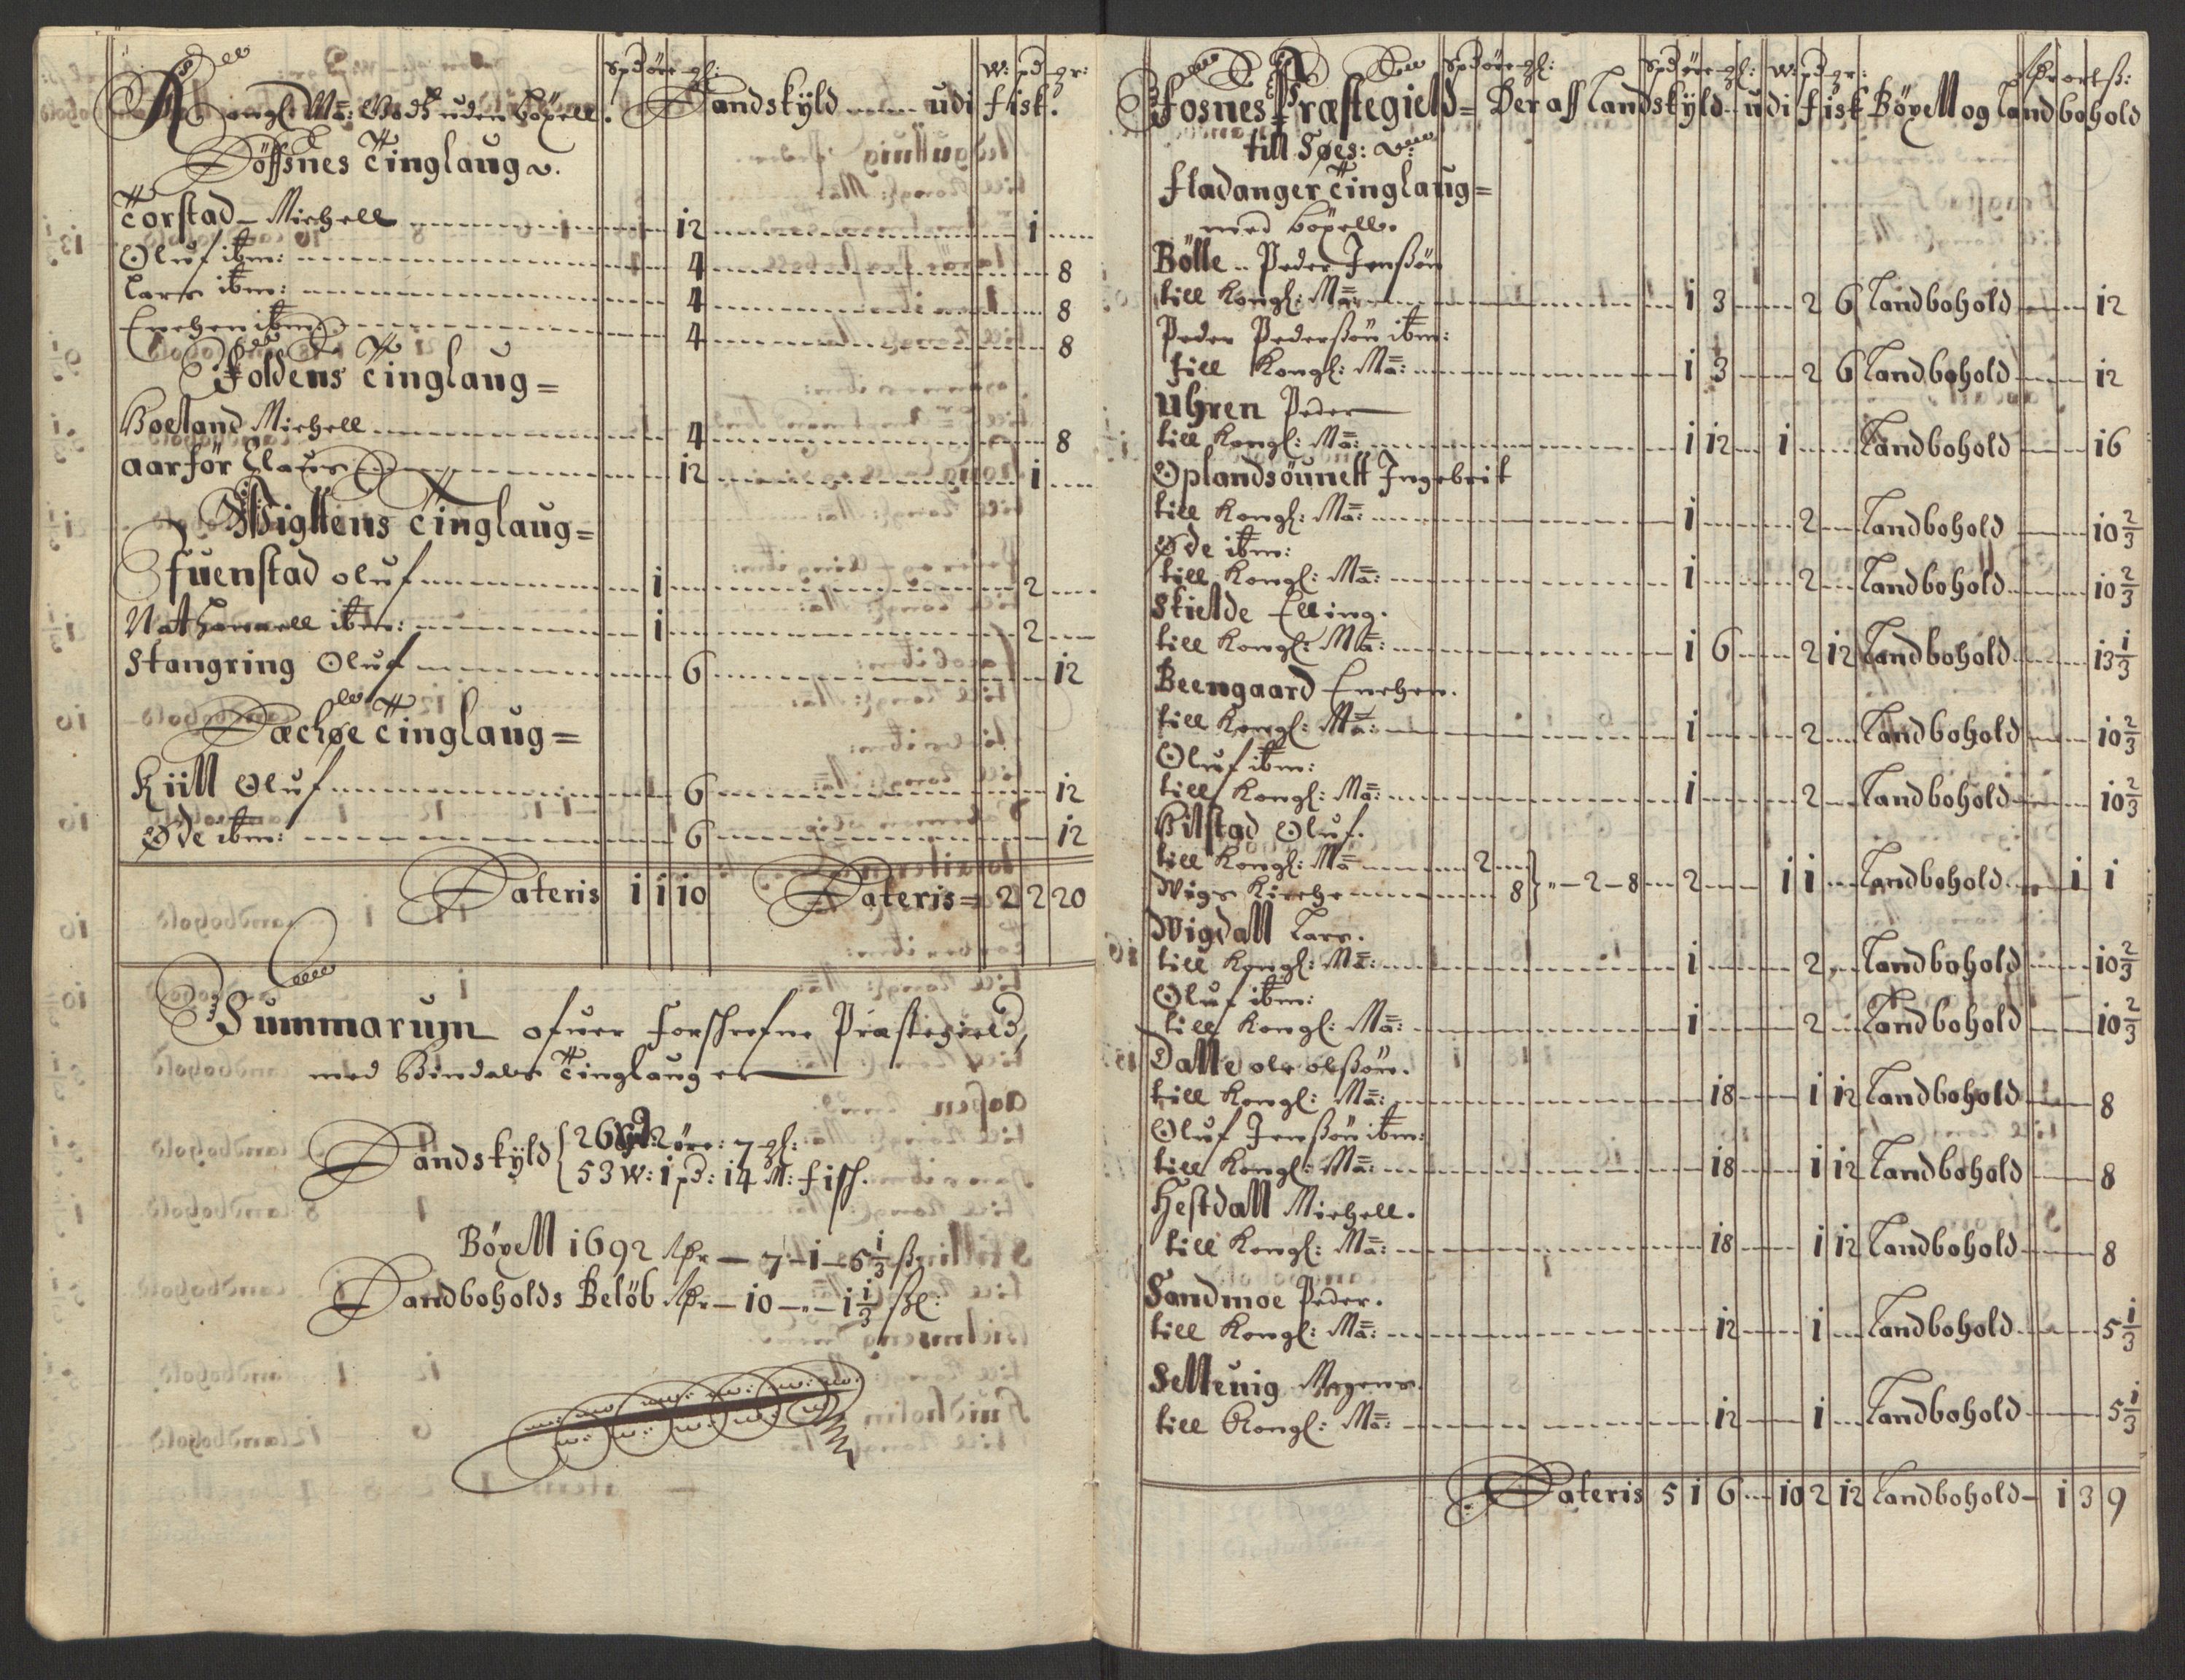 spd öre gl: w: pd gr:
Kongl: Ma: Godß uden böxell. Landskÿld udi fisk.
Söffsnes Tinglaug
Torstad Michell 12 1
Oluf ibm: 4 8
Lars ibm: 4 8
Erichen ibm: 4 8
Foldens Tinglaug =
Michell 4 8
aarför Claus 12 1
Wigttens Tinglaug =
fuenstad oluf 1 2
Nathanaell ibm: 1 2
Stangring Oluf 6 12
Tinglaug =
Kiill Oluf 6 12
Øde ibm: 6 12
Lateris 1 1 10 Lateris = 2 2 20
Summarum ofuer Forschrefne Præstegield,
med Bindals Tinglauger
Landskÿld { 26 spd 2 öre: 7 gl:
53 w: 1 pd: 14 M: fisch.
Böxell 1692 Rdr — 7 – 1 – 5 1/3 ß
Landboholds Belöb Rdr — 10 – „ – 1 1/3 ßl:

spd öre gl: spd öre gl: w: pd gr: Rdr ort ß:
Fosnes Præstegield = Der aff Landskÿld udi fisk Böxell og Landbohold
till Søes:
fladanger Tinglaug =
med böxell.
Bölle Peder Jenßön
till Kongl: Ma: 1 3 2 6 Landbohold 12
Peder Pederßön ibm:
till Kongl: Ma: 1 3 2 6 Landbohold 12
Uhren Peder
till Kongl: Ma: 1 12 1 Landbohold 16
Oplandsöunett Ingebrit
till Kongl: Ma: 1 2 Landbohold 10 2/3
Øde ibm:
till Kongl: Ma: 1 2 Landbohold 10 2/3
Skielde Elling.
till Kongl: Ma: 1 6 2 12 Landbohold 13 1/3
Beengaard Erichen.
till Kongl: Ma: 1 2 Landbohold 10 2/3
Oluf ibm:
till Kongl: Ma: 1 2 Landbohold 10 2/3
Hilstad Oluf.
till Kongl: Ma 2
Wigs Kirche 8 } „ – 2 – 8 2 1 1 Landbohold 1 1
Wigdall Lars.
till Kongl: Ma: 1 2 Landbohold 10 2/3
Oluf ibm:
till Kongl: Ma: 1 2 Landbohold 10 2/3
Dalle ole olßön.
till Kongl: Ma: 18 1 12 Landbohold 8
Oluf Jenßön ibm:
till Kongl: Ma: 18 1 12 Landbohold 8
Hestdall Michell.
till Kongl: Ma: 18 1 12 Landbohold 8
Sandmoe Peder.
till Kongl: Ma: 12 1 Landbohold 5 1/3
Selleuig Mogens.
till Kongl: Ma: 12 1 Landbohold 5 1/3
Lateris 5 1 6 10 2 12 Landbohold 1 3 9